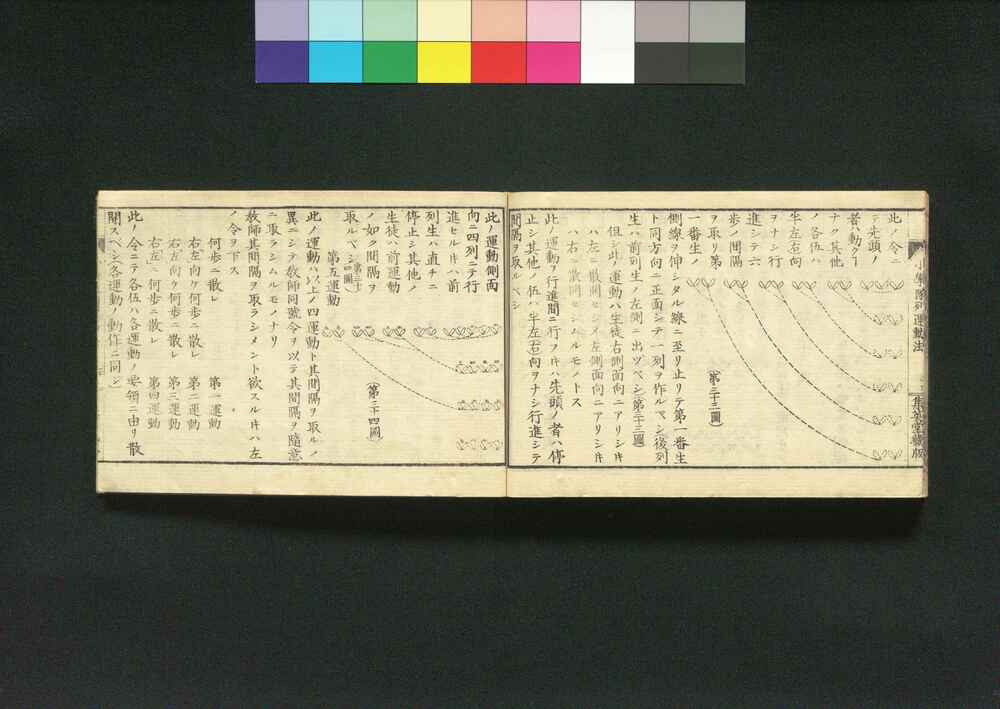 此ノ令ニ
テ先頭ノ
者ハ動クヿ
ナク其他
ノ各伍ハ
半左右向
ヲナシ行
進シテ六
歩ノ間隔
ヲ取リ第
一番生ノ
側線ヲ伸シタル線ニ至リ止リテ第一番生
ト同方向ニ正面シテ一列ヲ作ルベシ後列
生ハ前列生ノ左側ニ出ツベシ(第三十三圖)
但シ此ノ運動ハ生徒右側面向ニアリシキ
ハ左ニ散開セシメ左側面向ニアリシキ
ハ右ニ散開セシムルモノトス
此ノ運動ヲ行進間ニ行フキハ先頭ノ者ハ停
止シ其他ノ伍ハ半左(右)向ヲナシ行進シテ
間隔ヲ取ルベシ
(第三十三圖)
小學隊列運動法
集英堂藏版
此ノ運動側面
向ニ四列ニテ行
進セルキハ前
列生ハ直チニ
停止シ其他ノ
生徒ハ前運動
ノ如ク間隔ヲ
取ルベシ(第三十四圖)
第五運動
此ノ運動ハ以上ノ四運動ト其間隔ヲ取ルノ
異ニシテ教師同號令ヲ以テ其間隔ヲ隨意
ニ取ラシムルモノナリ
教師其間隔ヲ取ラシメント欲スルキハ左
ノ令ヲ下ス
何歩ニ散レ 第一運動
右左向ケ何歩ニ散レ 第二運動
右左向ケ何歩ニ散レ 第三運動
右左ニ何歩ニ散レ 第四運動
此ノ令ニテ各伍ハ各運動ノ要領ニ由リ散
開スベシ(各運動ノ動作ニ同シ)
(第三十四圖)